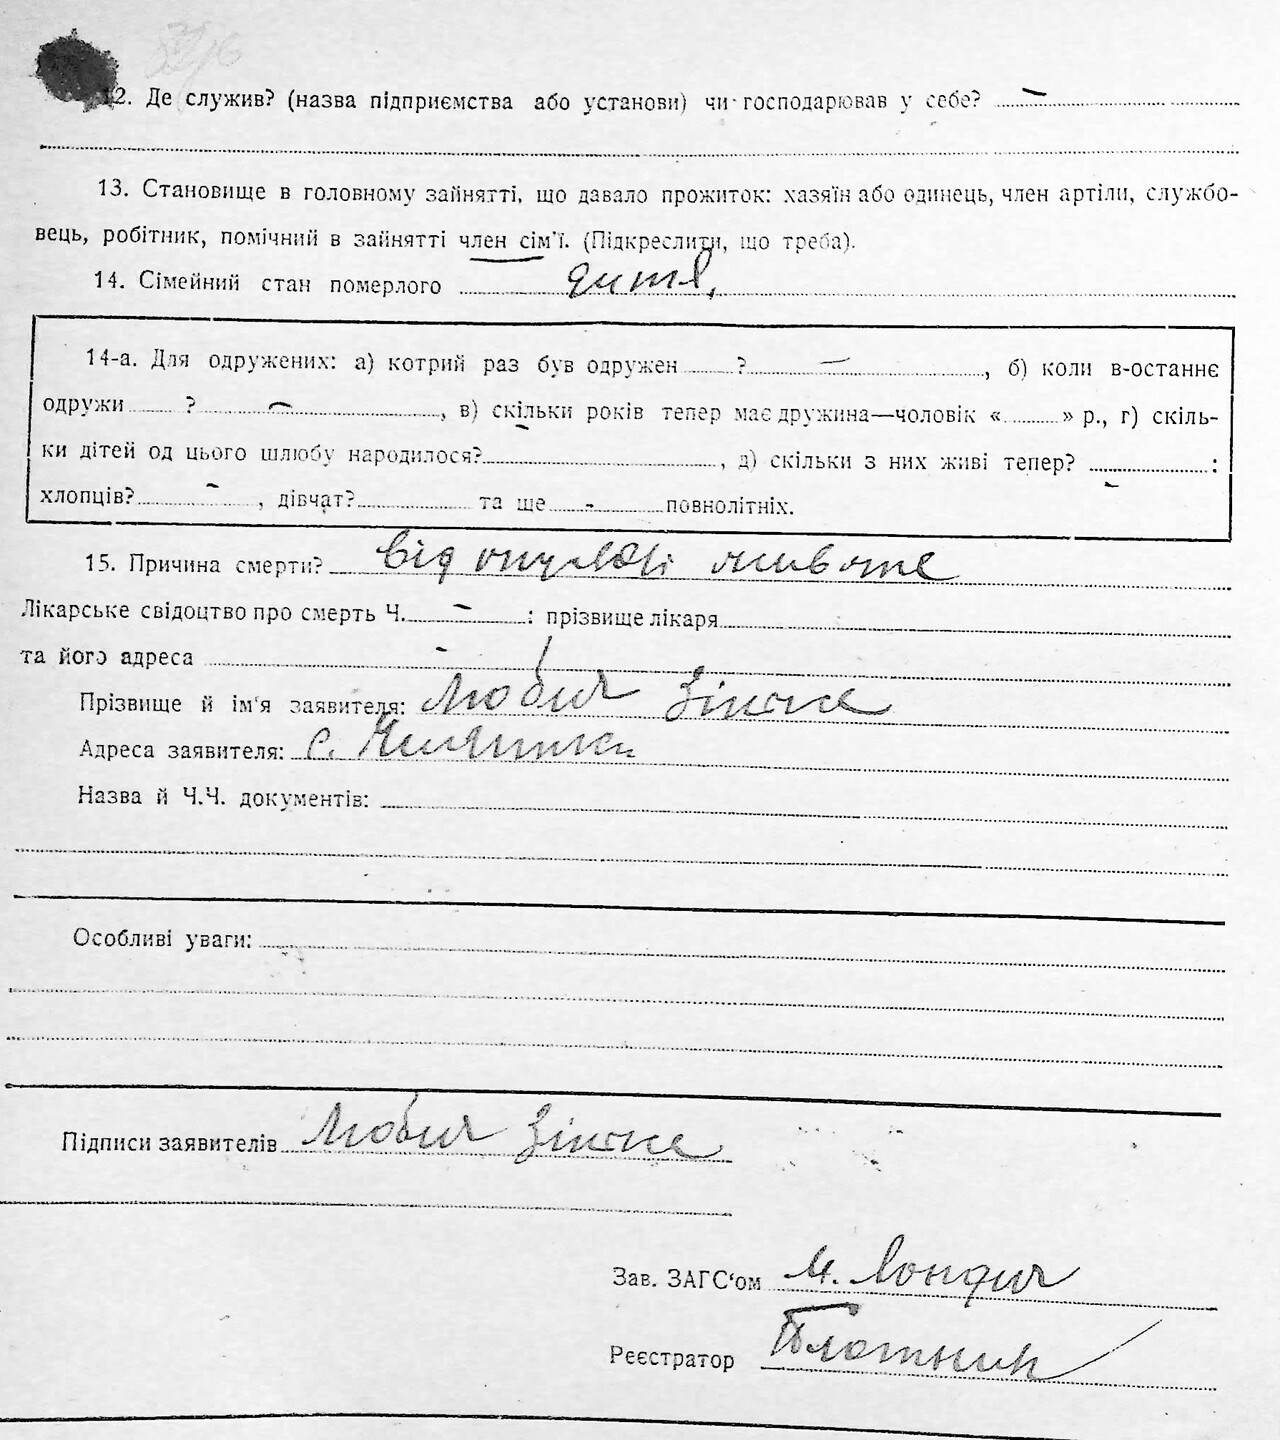 12. Де служив? (назва підприємства або установи) чи господарював у себе? –
13. Становище в головному зайнятті, що давало прожиток: хазяїн або одинець, член артіли, службо-
вець, робітник, помічний в зайнятті член сім'ї. (Підкреслити, що треба).
14. Сімейний стан померлого дитя,
14-а. Для одружених: а) котрий раз був одружен ? –, б) коли в-останнє
одружи ? –, в) скільки років тепер має дружина—чоловік « » р., г) скіль-
ки дітей од цього шлюбу народилося? –, д) скільки з них живі тепер? :
хлопців? –, дівчат? та ще - повнолітніх.
15. Причина смерти? від живота
Лікарське свідоцтво про смерть Ч. – : прізвище лікаря
та його адреса -
Прізвище й ім'я заявителя: Любич Зінька
Адреса заявителя: с.
Назва й Ч.Ч. документів:
Особливі уваги:
Підписи заявителів Любич Зінька
Зав. ЗАГС'ом
Реєстратор Плотник